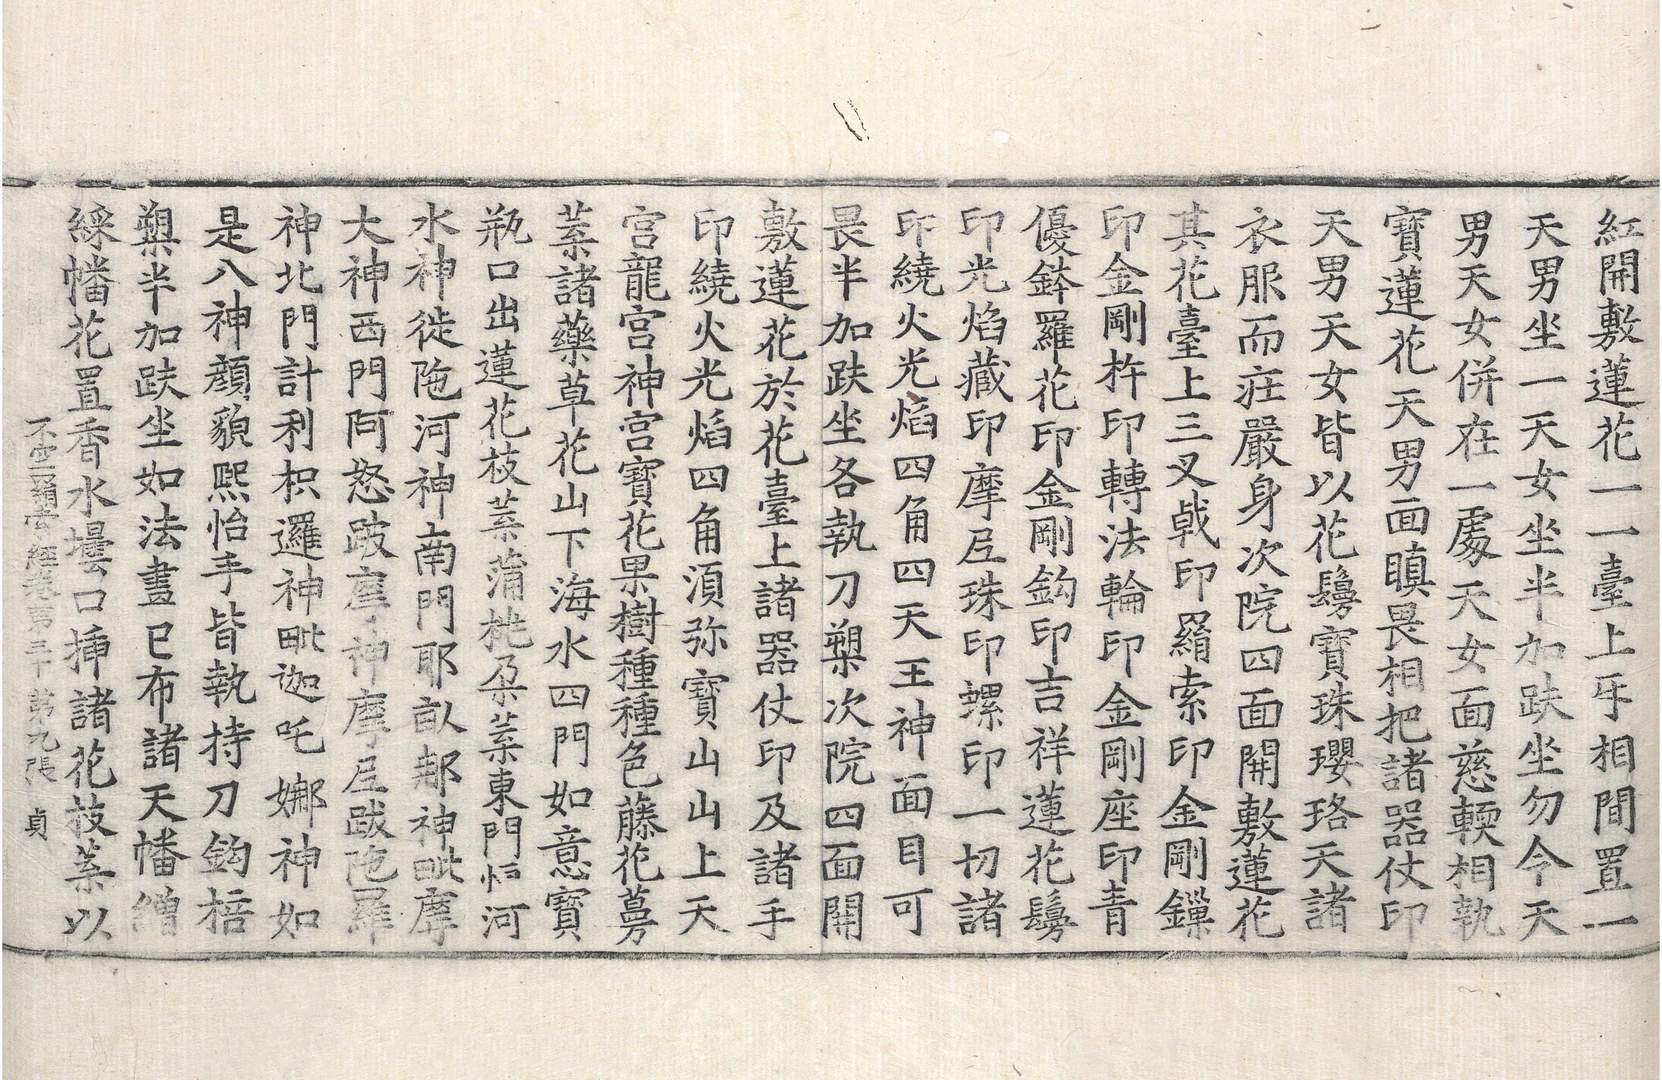 紅開敷蓮花一一臺上㸦相間置一
天男坐一天女坐半加趺坐勿令天
男天女併在一處天女面慈輭相執
寶蓮花天男面瞋畏相把諸器仗印
天男天女皆以花鬘寶珠瓔珞天諸
衣服而莊嚴身次院四面開敷蓮花
其花臺上三叉戟印羂索印金剛鏁
印金剛杵印轉法輪印金剛座印青
優鉢羅花印金剛鈎印吉祥蓮花鬘
印光焰藏印摩尼珠印螺印一切諸
印繞火光焰四角四天王神面目可
畏半加趺坐各執刀槊次院四面開
敷蓮花於花臺上諸器仗印及諸手
印繞火光焰四角湏弥寶山山上天
宫龍宫神宫寶花果樹種種色藤花蔓
葉諸藥草花山下海水四門如意寶
瓶口出蓮花枝葉蒲桃朶葉東門怇河
水神徙陁河神南門耶㽗那神毗摩
大神西門阿怒跛摩神摩尼跋陁羅
神北門計利枳邏神毗迦吒娜神如
是八神顔貌熈怡手皆執持刀鈎棓
槊半加趺坐如法畫已布諸天幡繒
綵幡花置香水壜口揷諸花枝葉以
不空羂索經卷第三十 第九張 貞